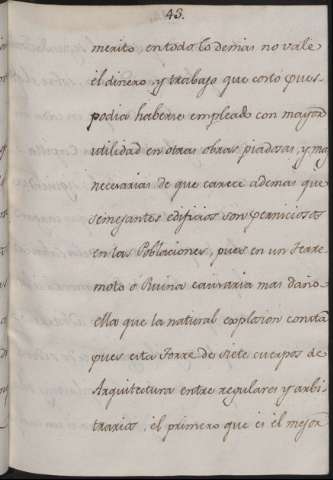 43.
merito, en todo lo demas no vale
el dinero, y trabajo que costó pues
podia haberse empleado con mayor
utilidad en otras obras piadosas, y mas
necesarias de que carece ademas que
semejantes edificios son perniciosos
en las Poblaciones, pues en un Terre
moto ô Ruina causaria mas daño
ella que la natural explosion
pues esta Torre de siete cuerpos de
Arquitectura entre regulares y arbi-
trarios, el primero que es el mejor